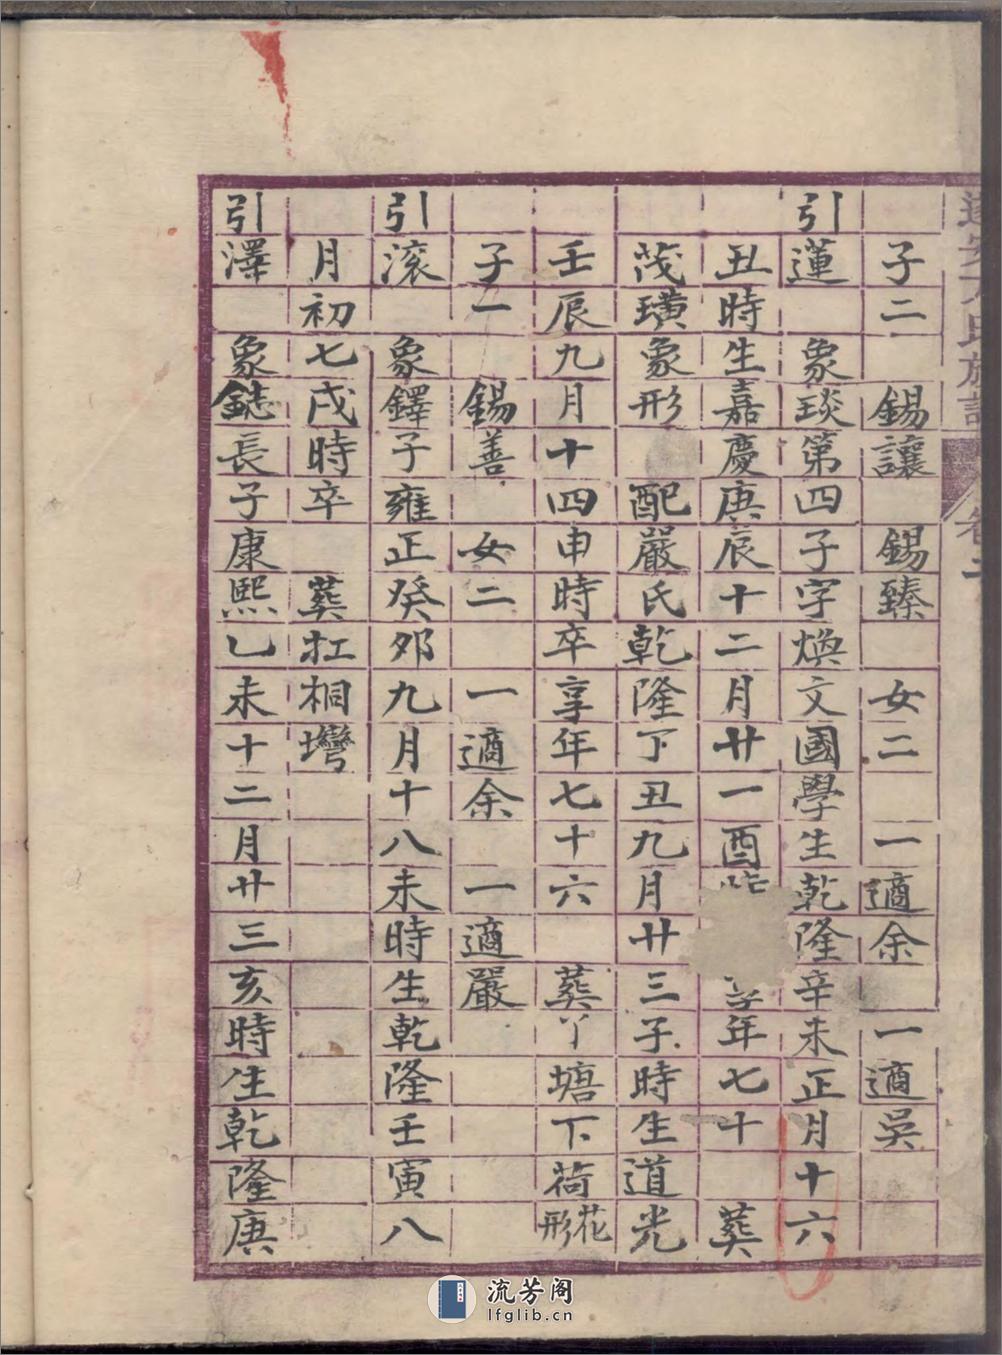 子二 錫讓 錫臻 女二 一適余 一適吳
引蓮 象琰第四子字煥文國學生乾隆辛未正月十六
丑時生嘉慶庚辰十二月廿一酉時 享年七十 葬
茂璜象形 配嚴氏乾隆丁丑九月廿三子時生道光
壬辰九月十四申時卒享年七十六 葬丫塘下荷花形
子一 錫善 女二 一適余 一適嚴
引滾 象鐸子雍正癸卯九月十八未時生乾隆壬寅八
月初七戌時卒 葬扛桐塆
引澤 象鋕長子康熙乙未十二月廿三亥時生乾隆庚
流芳阁
lfglib.cn